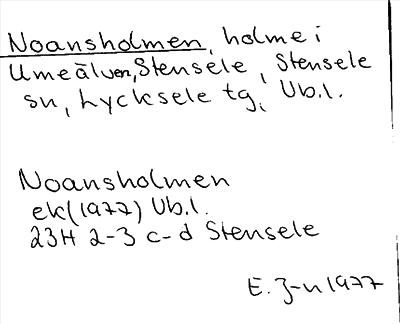 Noansholmen, holme i
Umeälven, Stensele, Stensele
sn, Lycksele tg, Vb.l.
Noansholmen
ek(1977) Vb.l.
23H 2-3 c-d Stensele
E. J-n 1977